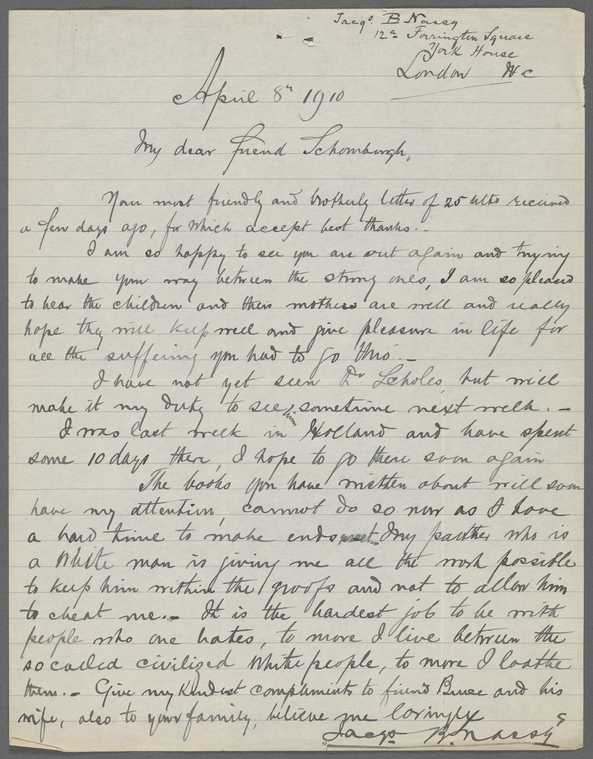 Jacqs. B. Nassy
12a Torrington Square
York House
London W C
April 8th 1910
My dear friend Schomburgh,
Your most friendly and brotherly letter of 25 ulto received
a few days ago, for which accept best thanks. -
I am so happy to see you are out again and trying
to make your way between the strong ones, I am so pleased
to hear the children and their mothers are well and really
hope they will keep well and give pleasure in life for
all the suffering you had to go thro. -
I have not yet seen Dr Scholes, but will
make it my duty to see him sometime next week. -
I was last week in Holland and have spent
some 10 days there, I hope to go there soon again
The books you have written about will soon
have my attention, cannot do so now as I have
a hard time to make ends meet. My partner who is
a White man is giving me all the work possible
to keep him within the proofs and not to allow him
to cheat me. - It is the hardest job to be with
people who one hates, to more I live between the
socalled civilized White people, to more I loathe
them. - Give my kindest compliments to friend Bruce and his
wife, also to your family, believe me lovingly
Jacqs. B. Nassy